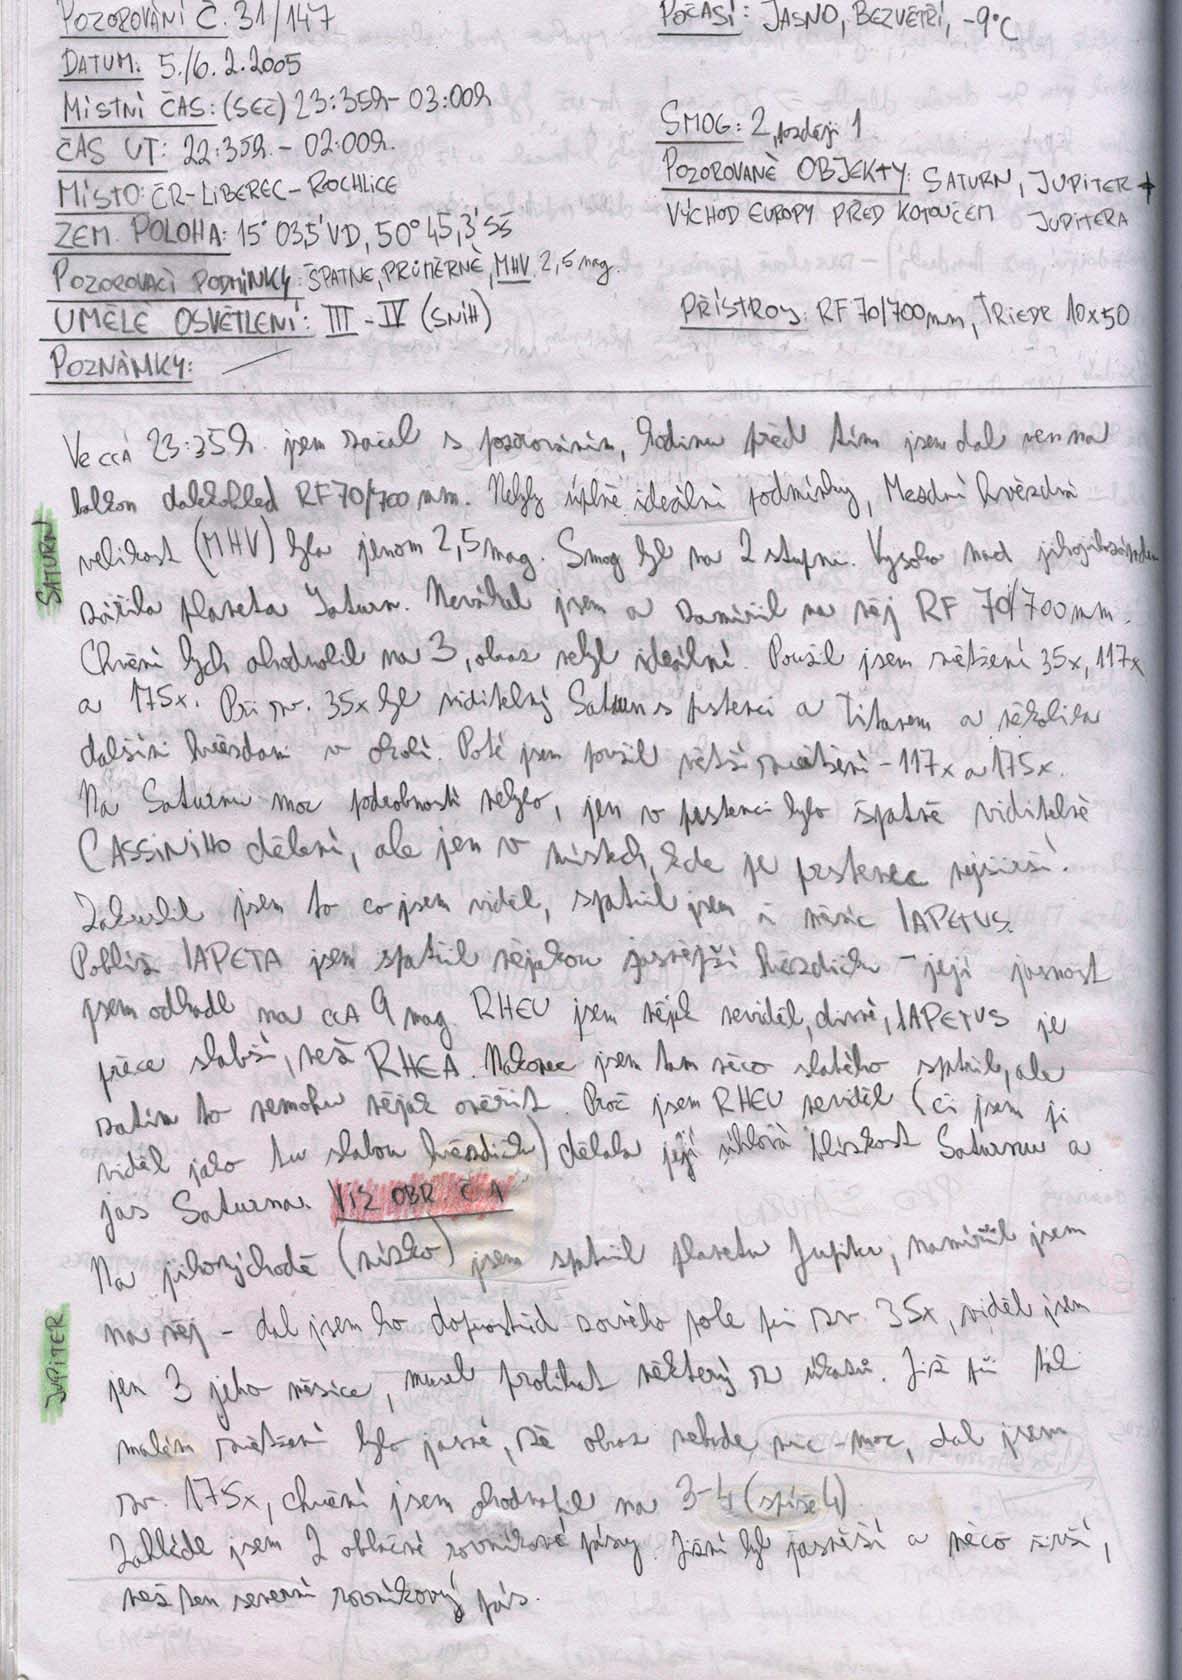 POZOROVÁNÍ Č. 31/147
DATUM: 5./6. 2. 2005
MÍSTNÍ ČAS: (SEČ) 23:35h - 03:00h
ČAS UT: 22:35h. - 02:00h.
MÍSTO: ČR-LIBEREC-ROCHLICE
ZEM. POLOHA: 15° 03,5' VD, 50° 45,3' SŠ
POZOROVACÍ PODMÍNKY: ŠPATNÉ, PRŮMĚRNÉ, MHV 2,5 mag.
UMĚLÉ OSVĚTLENÍ: III - IV (SNÍH)
POZNÁMKY: —
POČASÍ: JASNO, BEZVĚTŘÍ, -9°C
SMOG: 2, později 1
POZOROVANÉ OBJEKTY: SATURN, JUPITER +
VÝCHOD EUROPY PŘED KOTOUČEM JUPITERA
PŘÍSTROJ: RF 70/700mm, TRIEDR 10x50
SATURN
Ve CCA 23:35h. jsem začal s pozorováním, hodinu před tím jsem dal ven na
balkon dalekohled RF 70/700 mm. Nebyly úplně ideální podmínky, Mezdní hvězdná
velikost (MHV) byla jenom 2,5 mag. Smog byl na 2 stupni. Vysoko nad
zářila planeta Saturn. Neváhal jsem a zamířil na něj RF 70/700 mm.
Chvění bych ohodnotil na 3, obraz nebyl ideální. Použil jsem zvětšení 35x, 117x
a 175x. Při zv. 35x byl viditelný Saturn s prstenci a Titanem a několika
dalšími hvězdami v okolí. Poté jsem použil větší zvětšení - 117x a 175x.
Na Saturnu moc podrobností nebylo, jen v prstenci bylo špatně viditelné
CASSINIHO dělení, ale jen v místech, kde je prstenec nejširší.
Zakreslil jsem to co jsem viděl, spatřil jsem i měsíc IAPETUS.
Poblíž IAPETA jsem spatřil nějakou jasnější hvězdičku - její jasnost
jsem odhadl na CCA 9 mag. RHEU jsem nějak neviděl, divné, IAPETUS je
přece slabší, než RHEA. Nakonec jsem tam něco slabého spatřil, ale
zatím to nemohu nějak ověřit. Proč jsem RHEU neviděl (či jsem ji
viděl jako tu slabou hvězdičku) dělala její úhlová blízkost Saturnu a
jas Saturna. VIZ OBR Č. A
JUPITER
Na jihovýchodě (nízko) jsem spatřil planetu Jupiter, namířil jsem
na něj - dal jsem ho doprostřed zorného pole při zv. 35x, viděl jsem
jen 3 jeho měsíce, musel probíhat některý z úkazů. Již při tak
malém zvětšení bylo jasné, že obraz nebude nic-moc, dal jsem
zv. 175x, chvění jsem ohodnotil na 3-4 (spíše 4).
Zahlédl jsem 2 oblačné rovníkové pásy. Jižní byl jasnější a něco širší,
než ten severní rovníkový pás.